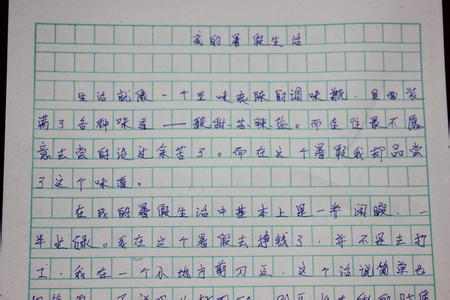 我的暑假生活
生活就像一个五味杂陈的调味瓶，里面装
满了各种味道——酸甜苦辣盐。而往往最不愿
意去尝的莫过余苦了。而在这个暑假我却品尝
了这个味道。
在我的暑假生活中基本上是一半闲暇，一
半忙碌。我在这个暑假去挣钱了，并不是去打
工，我在一个小地方剪刀豆，这个活说简单也